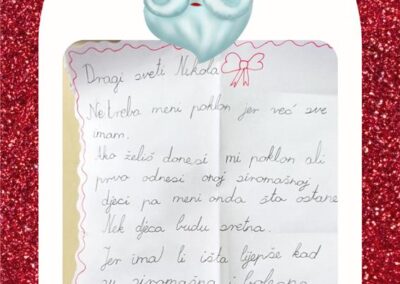 Dragi sveti Nikola
Ne treba meni poklon jer već sve
imam.
Ako želiš donesi mi poklon ali
prvo odnesi onoj siromašnoj
djeci pa meni onda šta ostane
Nek djeca budu sretna.
Jer ima' li išta ljepše kad
su siromašna i bolesna